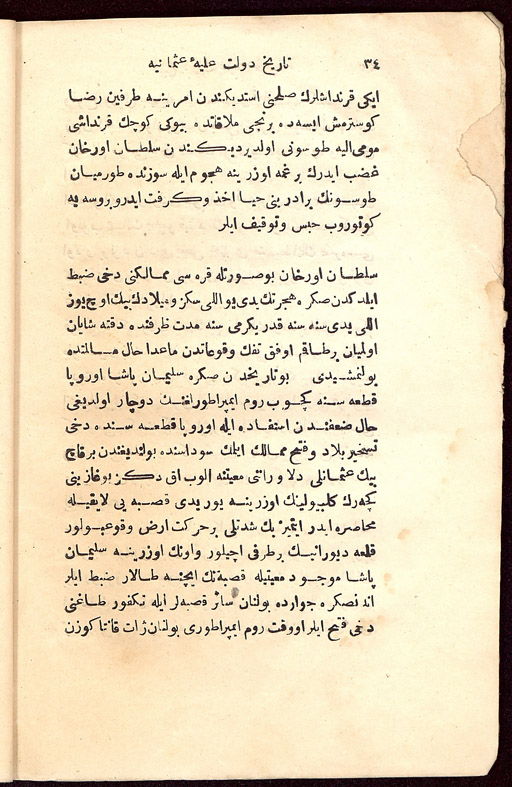 ٣٤ تاریخ دولت علیهٔ عثمانیه
ایکی قرنداشلرك صلحنی استدیکندن امرینه طرفین رضا
کوسترمش ایسه ده برنجی ملاقاتده بیوکی کوچك قرنداشی
مومی الیه طوسونی اولدیردیکندن سلطان اورخان
غضب ایدرك برغمه اوزرینه هجوم ایله سوزنده طورمیان
طوسونك برادرینی حیا اخذ وکرفت ایدوبروسه یه
کوتوروب حبس وتوقیف ایلر
سلطان اورخان بوصورتله قره سی ممالکنی دخی ضبط
ایلدکدن صکره هجرتك یدی یوز اللی سکز ومیلادك بیك اوچیوز
اللی یدی سنه سنه قدر یکرمی سنه مدت ظرفنده دقته شایان
اولمیان برطاقم اوفق تفك وقوعاتدن ماعدا حال سالمتده
بولنمشیدی بوتاریخدن صکره سلیمان پاشا اوروپا
قطعه سنه کچوب روم ایمپراطورلغنك دوچار اولدیغی
حال ضعفندن استفاده ایله اوروپا قطعه سنده دخی
تسخیر بلاد وفتح ممالك ایلمك سوداسنده بولندیغندن برقاچ
بیك عثمانلی دلاوراتنی معیتنه الوب اق دکز بوغازینی
کچه رك کلیبولینك اوزرینه یوریدی قصبه یی لایقیله
محاصره ایدر ایتمز بك شدتلی برحرکت ارض وقوعبولور
قلعه دیورانیك برطرفی اچیلور واونك اوزرینه سلیمان
پاشا موجود معیتیله قصبه نك ایچنه طالار ضبط ایلر
اندنصکره جوارده بولنان سائر قصبه لر ایله تکفور طاغنی
دخی فتح ایلر اووقت روم ایمپراطوری بولنان ژان قانتاکوزن